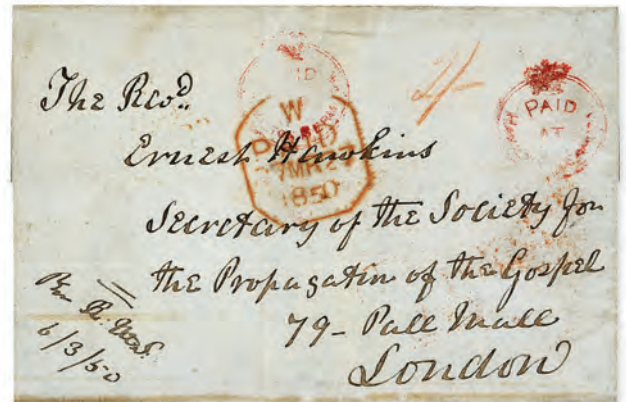 The Revd.
Ernest Hawkins
Secretary of the Society for
the Propagation of the Gospel
79 - Pall Mall
London
2/-
PAID
AT
W
PAID
MR 27
1850
6/3/50